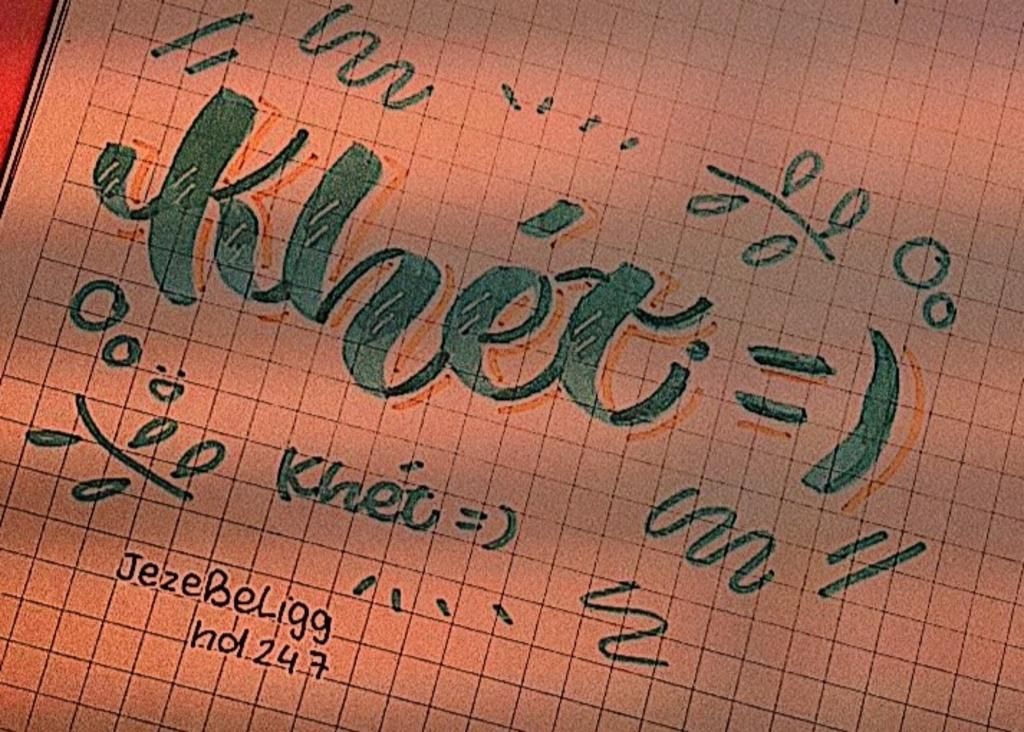 Khét =)
Khét =)
JezeBeLigg
hd.247